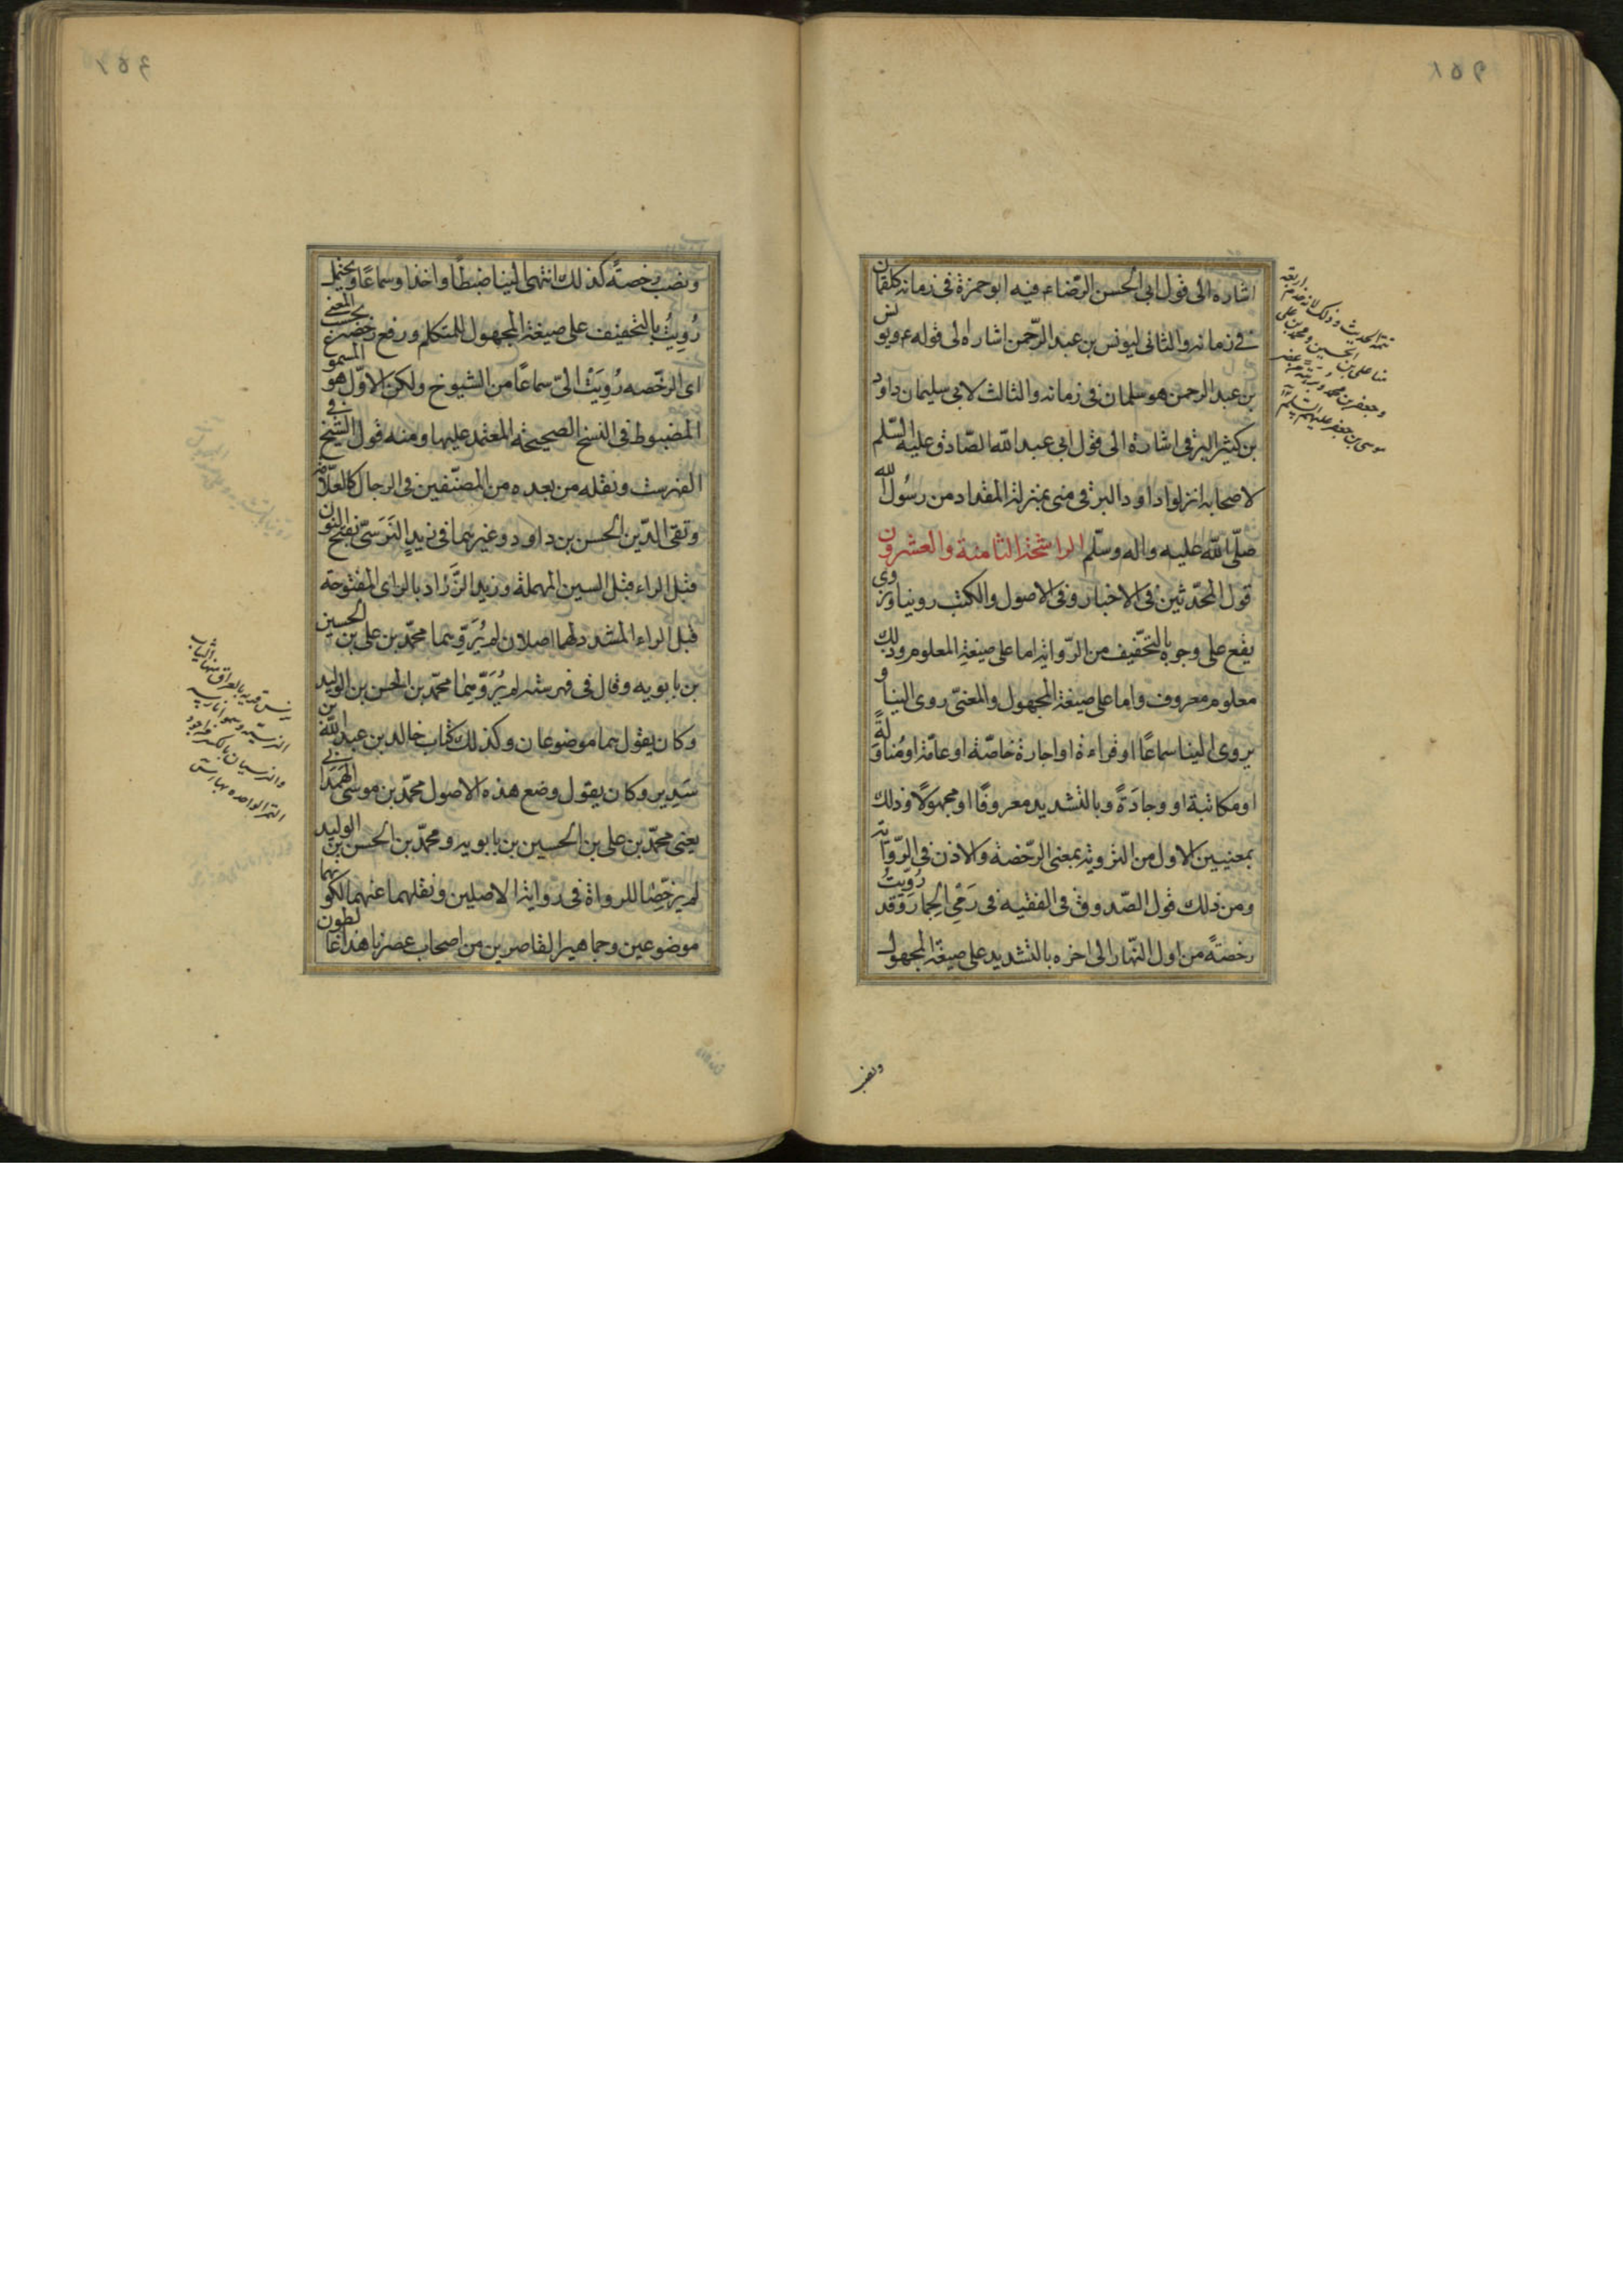 اشاره الى قول ابى الحسن الرّضاء فيه ابو حمزة فى زمانه كلقمان
فى زمانه والثانى ليونس بن عبد الرّحمن اشاره الى قوله ع ويونس
بن عبد الرحمن هو سلمان فى زمانه والثالث لابى سليمان داود
بن كثير البرقى اشارة الى قول ابى عبد الله الصّادق عليه السّلم
لاصحابه انزلوا داود البرقى منى بمنزلة المقداد من رسُول الله
صلّى الله عليه واله وسلّم الراشحة الثامنة والعشرون
قول المحدّثين فى الاخبار وفى الاصول والكتب روينا ونروى
يقع على وجوه بالتخّفيف من الرّواية اما على صيغة المعلوم وذلك
معلوم معروف واما على صيغة المجهول والمعنىّ روى الينا و
يروى الينا سماعًا او قراءة او اجازة خاصّة او عامّة او مُناولةً
او مكاتبة او وجادَةً وبالتشديد معروفًا او مجهولًا وذلك
بمعنيين الاول من التروية بمعنى الرّخصة والاذن فى الرّواية
ومن ذلك قول الصّدوق فى الفقيه فى رَمْى الجِمار وقد رُوّيتُ
رخصةً من اول النّهار الى اخره بالتشديد على صيغة المجهول
ونصب
تتمة الحديث وذلك لانه خدم اربعة
منا على بن الحسين ومحمد بن على
وجعفر بن محمد وبرهة من عصر
موسى بن جعفر عليهم السلم
ونصب رخصةً كذلك انتهى الينا ضبطًا واخذا وسماعًا ويحتمل
رُوِيتُ بالتخفيف على صيغة المجهول للمتكلم ورفع رخصة بحسب المعنى
اى الرخّصه رُوِيَتْ الىّ سماعًا من الشيوخ ولكن الاوّل هو المسموع
المضبوط فى النسخ الصحيحة المعتمد عليها ومنه قول الشيخ فى
الفهرست ونقله من بعده من المصنّفين فى الرجال كالعلّامة
وتقى الدّين الحسن بن داود وغيرهما فى زيدٍ النَرَسىّ بفتح النون
قبل الراء قبل السين المهملة وزيد الزَّرّاد بالزاى المفتوحة
قبل الراء المشدد لهما اصلان لم يُرَوِّهما محمّد بن على بن الحسين
بن بابويه وقال فى فهرسته لم يُرَوِّهما محمّد بن الحسن بن الوليد
وكان يقول هما موضوعان وكذلك كتاب خالد بن عبد الله بن
سَدِير وكان يقول وضع هذه الاصول محمّد بن موسى الهَمَدانى
يعنى محمّد بن على بن الحسين بن بابويه ومحمّد بن الحسن بن الوليد
لم يرخّصِا للرواة فى رواية الاصلين ونقلهما عنهما لكونهما
موضوعين وجماهير القاصرين من اصحاب عصرنا هذا غالطون
نرس قرية بالعراق منها الثياب
النرسيّة